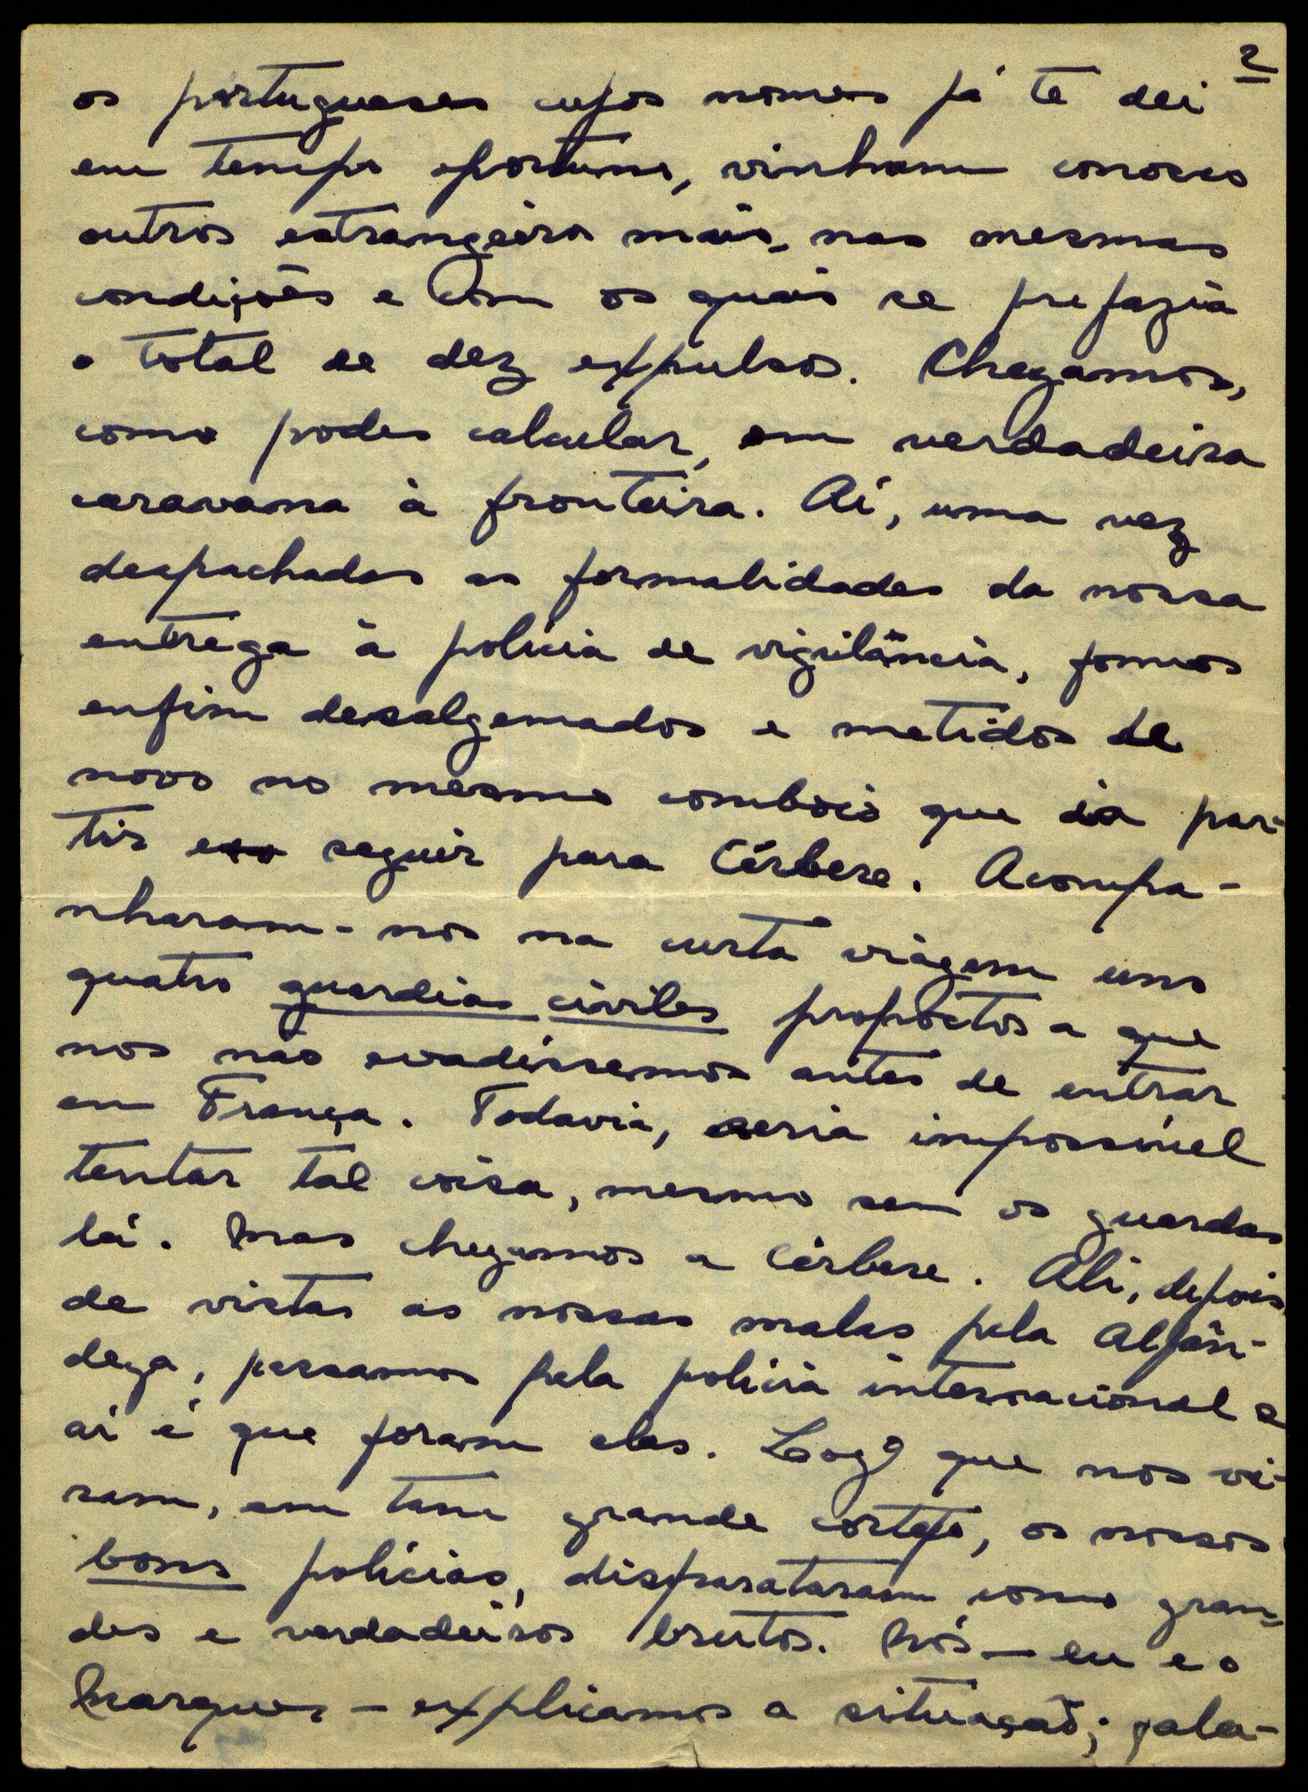 2
os portugueses cujos nomes já te dei
em tempo oportuno, vinham conosco
outros estrangeiros mais, nas mesmas
condições e com os quais se prefazia
o total de dez expulsos. Chegamos,
como podes calcular, em verdadeira
caravana à fronteira. Aí, uma vez
despachadas as formalidades da nossa
entrega à polícia de vigilância, fomos
enfim desalgemados e metidos de
novo no mesmo comboio que ia par-
tir e seguir para Cérbere. Acompa-
nharam-nos na curta viagem uns
quatro guardias civiles propostos a que
nos não evadíssemos antes de entrar
em França. Todavia, seria impossível
tentar tal coisa, mesmo sem os guardas
lá. Mas chegamos a Cérbere. Ali, depois
de vistas as nossas malas pela Alfân-
dega, passamos pela polícia internacional e
aí é que foram elas. Logo que nos vi-
ram, em tam grande cortejo, os nossos
bons polícias, disparataram como gran-
des e verdadeiros brutos. Nós — eu e o
Marques — explicamos a situação; pala-